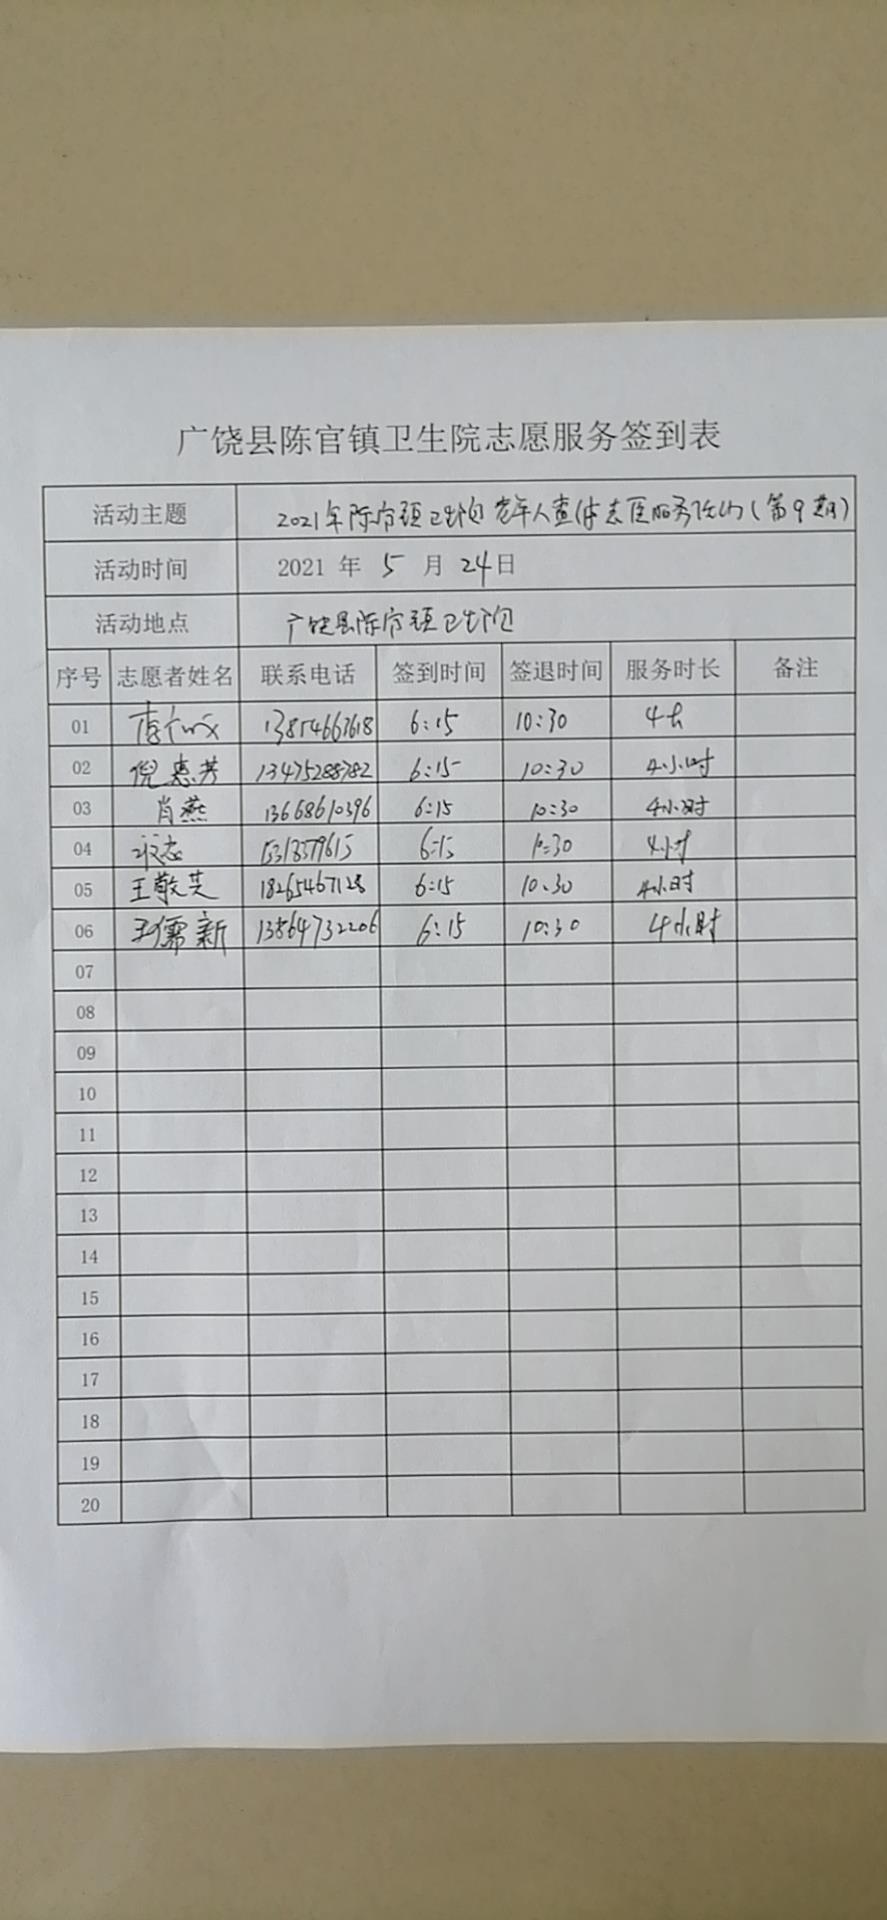 广饶县陈官镇卫生院志愿服务签到表
活动主题 2021年陈官镇卫生院老年人查体志愿服务活动(第9期)
活动时间 2021 年 5 月 24日
活动地点 广饶县陈官镇卫生院
序号 志愿者姓名 联系电话 签到时间 签退时间 服务时长 备注
01 13854663618 6:15 10:30 4
02 倪惠芳 13475288782 6:15 10:30 4小时
03 肖燕 13668610396 6:15 10:30 4小时
04 6:15 10:30 4小时
05 王敬芝 18265467128 6:15 10:30 4小时
06 王儒新 13864732206 6:15 10:30 4小时
07
08
09
10
11
12
13
14
15
16
17
18
19
20